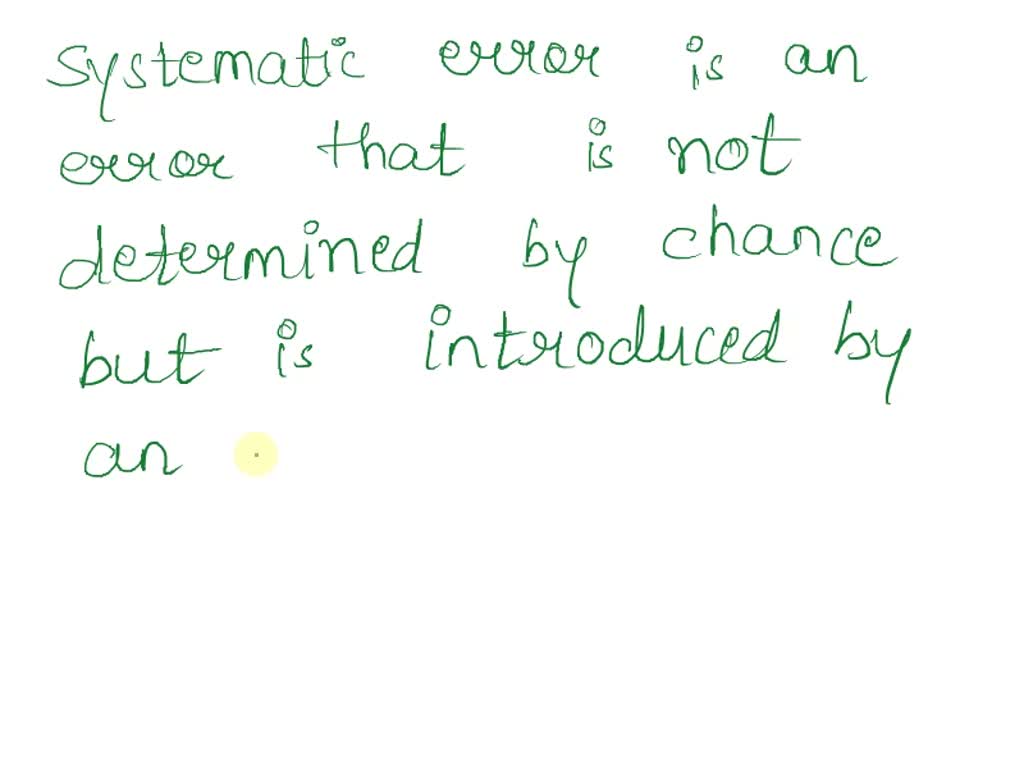 systematic error is an
error that is not
determined by chance
but is introduced by
an